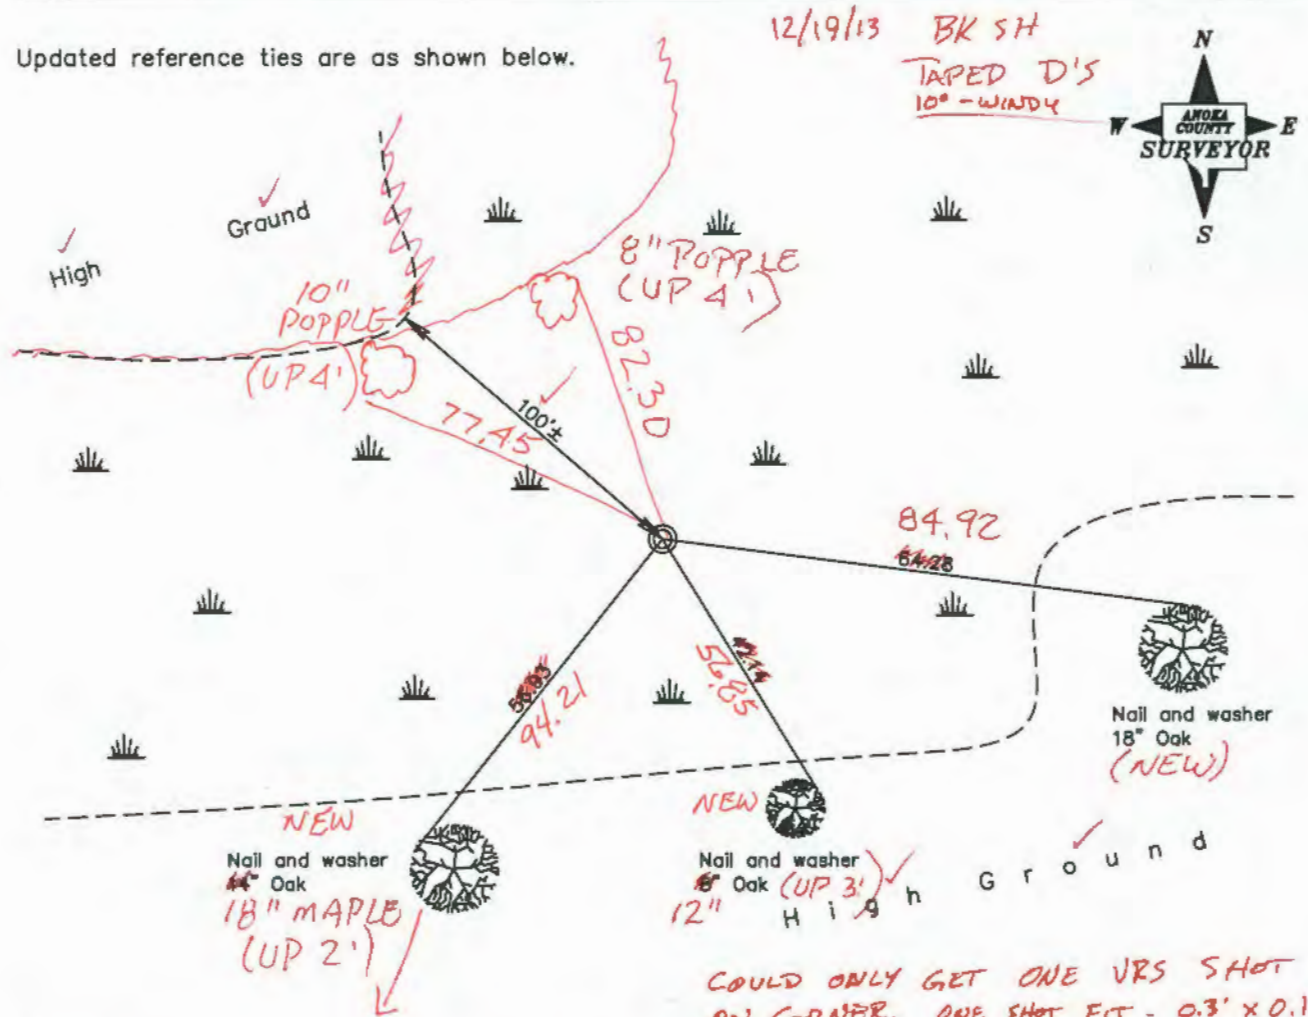 12/19/13 BK SH
Updated reference ties are as shown below.
TAPED D'S
10° - WINDY
N
W
ANOKA
COUNTY
E
SURVEYOR
S
High Ground
8" POPPLE
(UP 4')
10"
POPPLE
(UP 4')
82.30
100'±
77.45
84.92
64.28
56.85
94.21
Nail and washer
18" Oak
(NEW)
NEW
NEW
Nail and washer
Oak
18" MAPLE
(UP 2')
Nail and washer
Oak (UP 3')
12"
High Ground
COULD ONLY GET ONE VRS SHOT
ONE SHOT FIT - 0.3' x 0.1